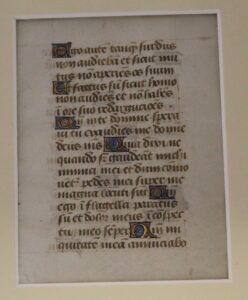 Ego aute tanq̃ surdus
non audieba et sicut mu
tus no aperies os suum
Et factus su sicut homo
non audies et no habes
i ore suo redargucoes
Qm in te domine spera
ui tu exaudies me domie
deus m̃s Quia dixi ne
quando sr gaudeat michi
inimici mei et dum como
uet᷑ pedes mei super me
magna locuti sut Qm
ego i flagella paratus
su et dolor meus i cospec
tu meo semper Qm ini
quitate mea anunciabo